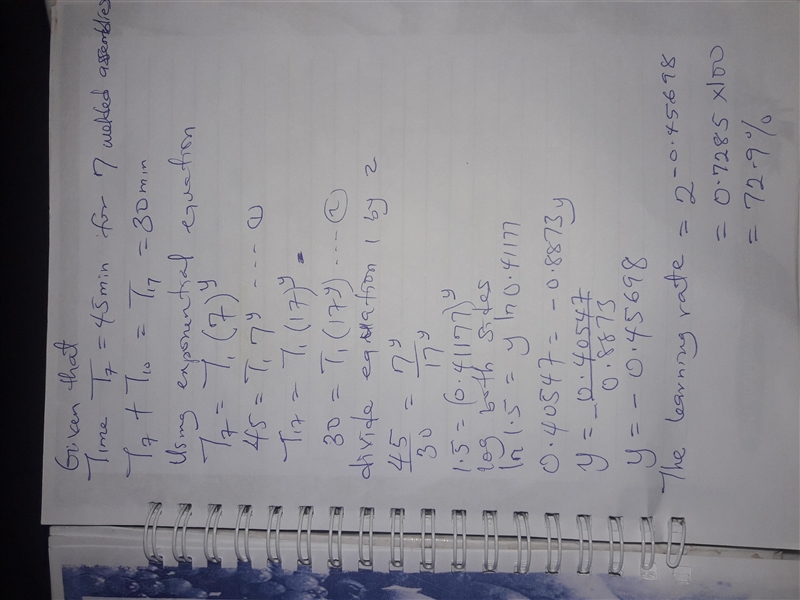 Given that
Time T₇ = 45min for 7 welded assemblies
T₇ + T₁₀ = T₁₇ = 30min
Using exponential equation
T₇ = T₁(7)ʸ
45 = T₁ 7ʸ ---- ①
T₁₇ = T₁(17)ʸ
30 = T₁(17ʸ) ---- ②
divide equation 1 by 2
45/30 = 7ʸ/17ʸ
1.5 = (0.41177)ʸ
log both sites
ln 1.5 = y ln 0.41177
0.40547 = -0.8873y
y = -0.40547/0.8873
y = -0.45698
The learning rate = 2^-0.45698
= 0.7285 x100
= 72.9%